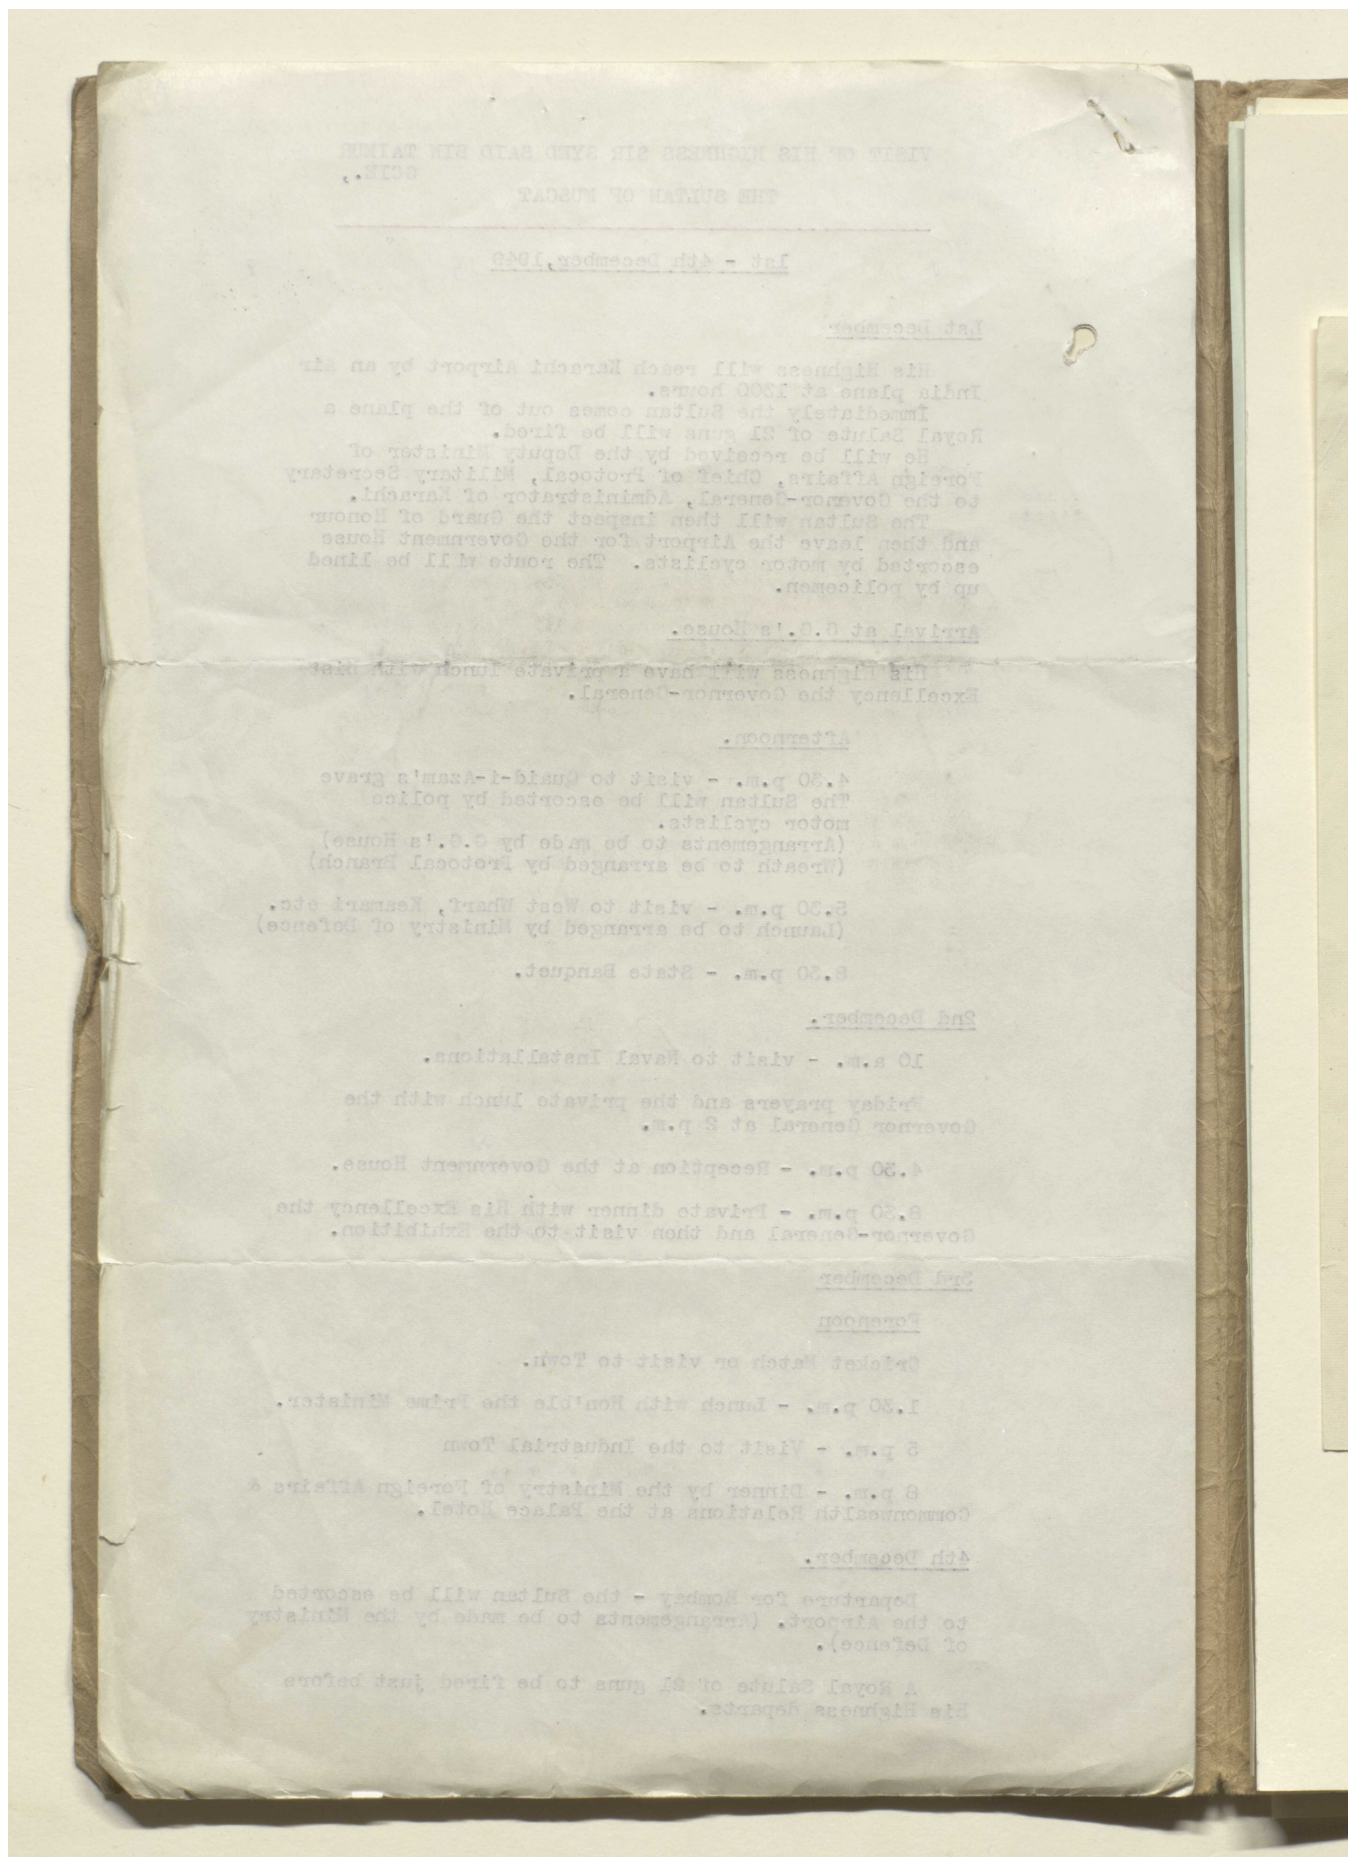 VISIT OF HIS HIGHNESS SIR SYED SAID BIN TAIMUR
GCIE.,
THE SULTAN OF MUSCAT
1st - 4th December,1949
1st December
His Highness will reach Karachi Airport by an Air
India plane at 1300 hours.
Immediately the Sultan comes out of the plane a
Royal Salute of 21 guns will be fired.
He will be received by the Deputy Minister of
Foreign Affairs, Chief of Protocal, Military Secretary
to the Governor-General, Administrator of Karachi.
The Sultan will then inspect the Guard of Honour
and then leave the Airport for the Government House
escorted by motor cyclists. The route will be lined
up by policemen.
Arrival at G.G.'s House.
His Highness will have a private lunch with
Excellency the Governor-General.
Afternoon.
4.30 p.m. - visit to Quaid-i-Azam's grave
The Sultan will be escorted by police
motor cyclists.
(Arrangements to be made by G.G.'s House)
(Wreath to be arranged by Protocal Branch)
5.30 p.m. - visit to West Wharf, Keamari etc.
(Launch to be arranged by Ministry of Defence)
8.30 p.m. - State Banquet.
2nd December.
10 a.m. - visit to Naval Installations.
Friday prayers and the private lunch with the
Governor General at 2 p.m.
4.30 p.m. - Reception at the Government House.
8.30 p.m. - Private dinner with His Excellency the
Governor-General and then visit to the Exhibition.
3rd December
Forenoon
Cricket Match or visit to Town.
1.30 p.m. - Lunch with Hon'ble the Prime Minister.
5 p.m. - Visit to the Industrial Town
8 p.m. - Dinner by the Ministry of Foreign Affairs &
Commonwealth Relations at the Palace Hotel.
4th December.
Departure for Bombay - the Sultan will be escorted
to the Airport. (Arrangements to be made by the Ministry
of Defence).
A Royal Salute of 21 guns to be fired just before
his Highness departs.